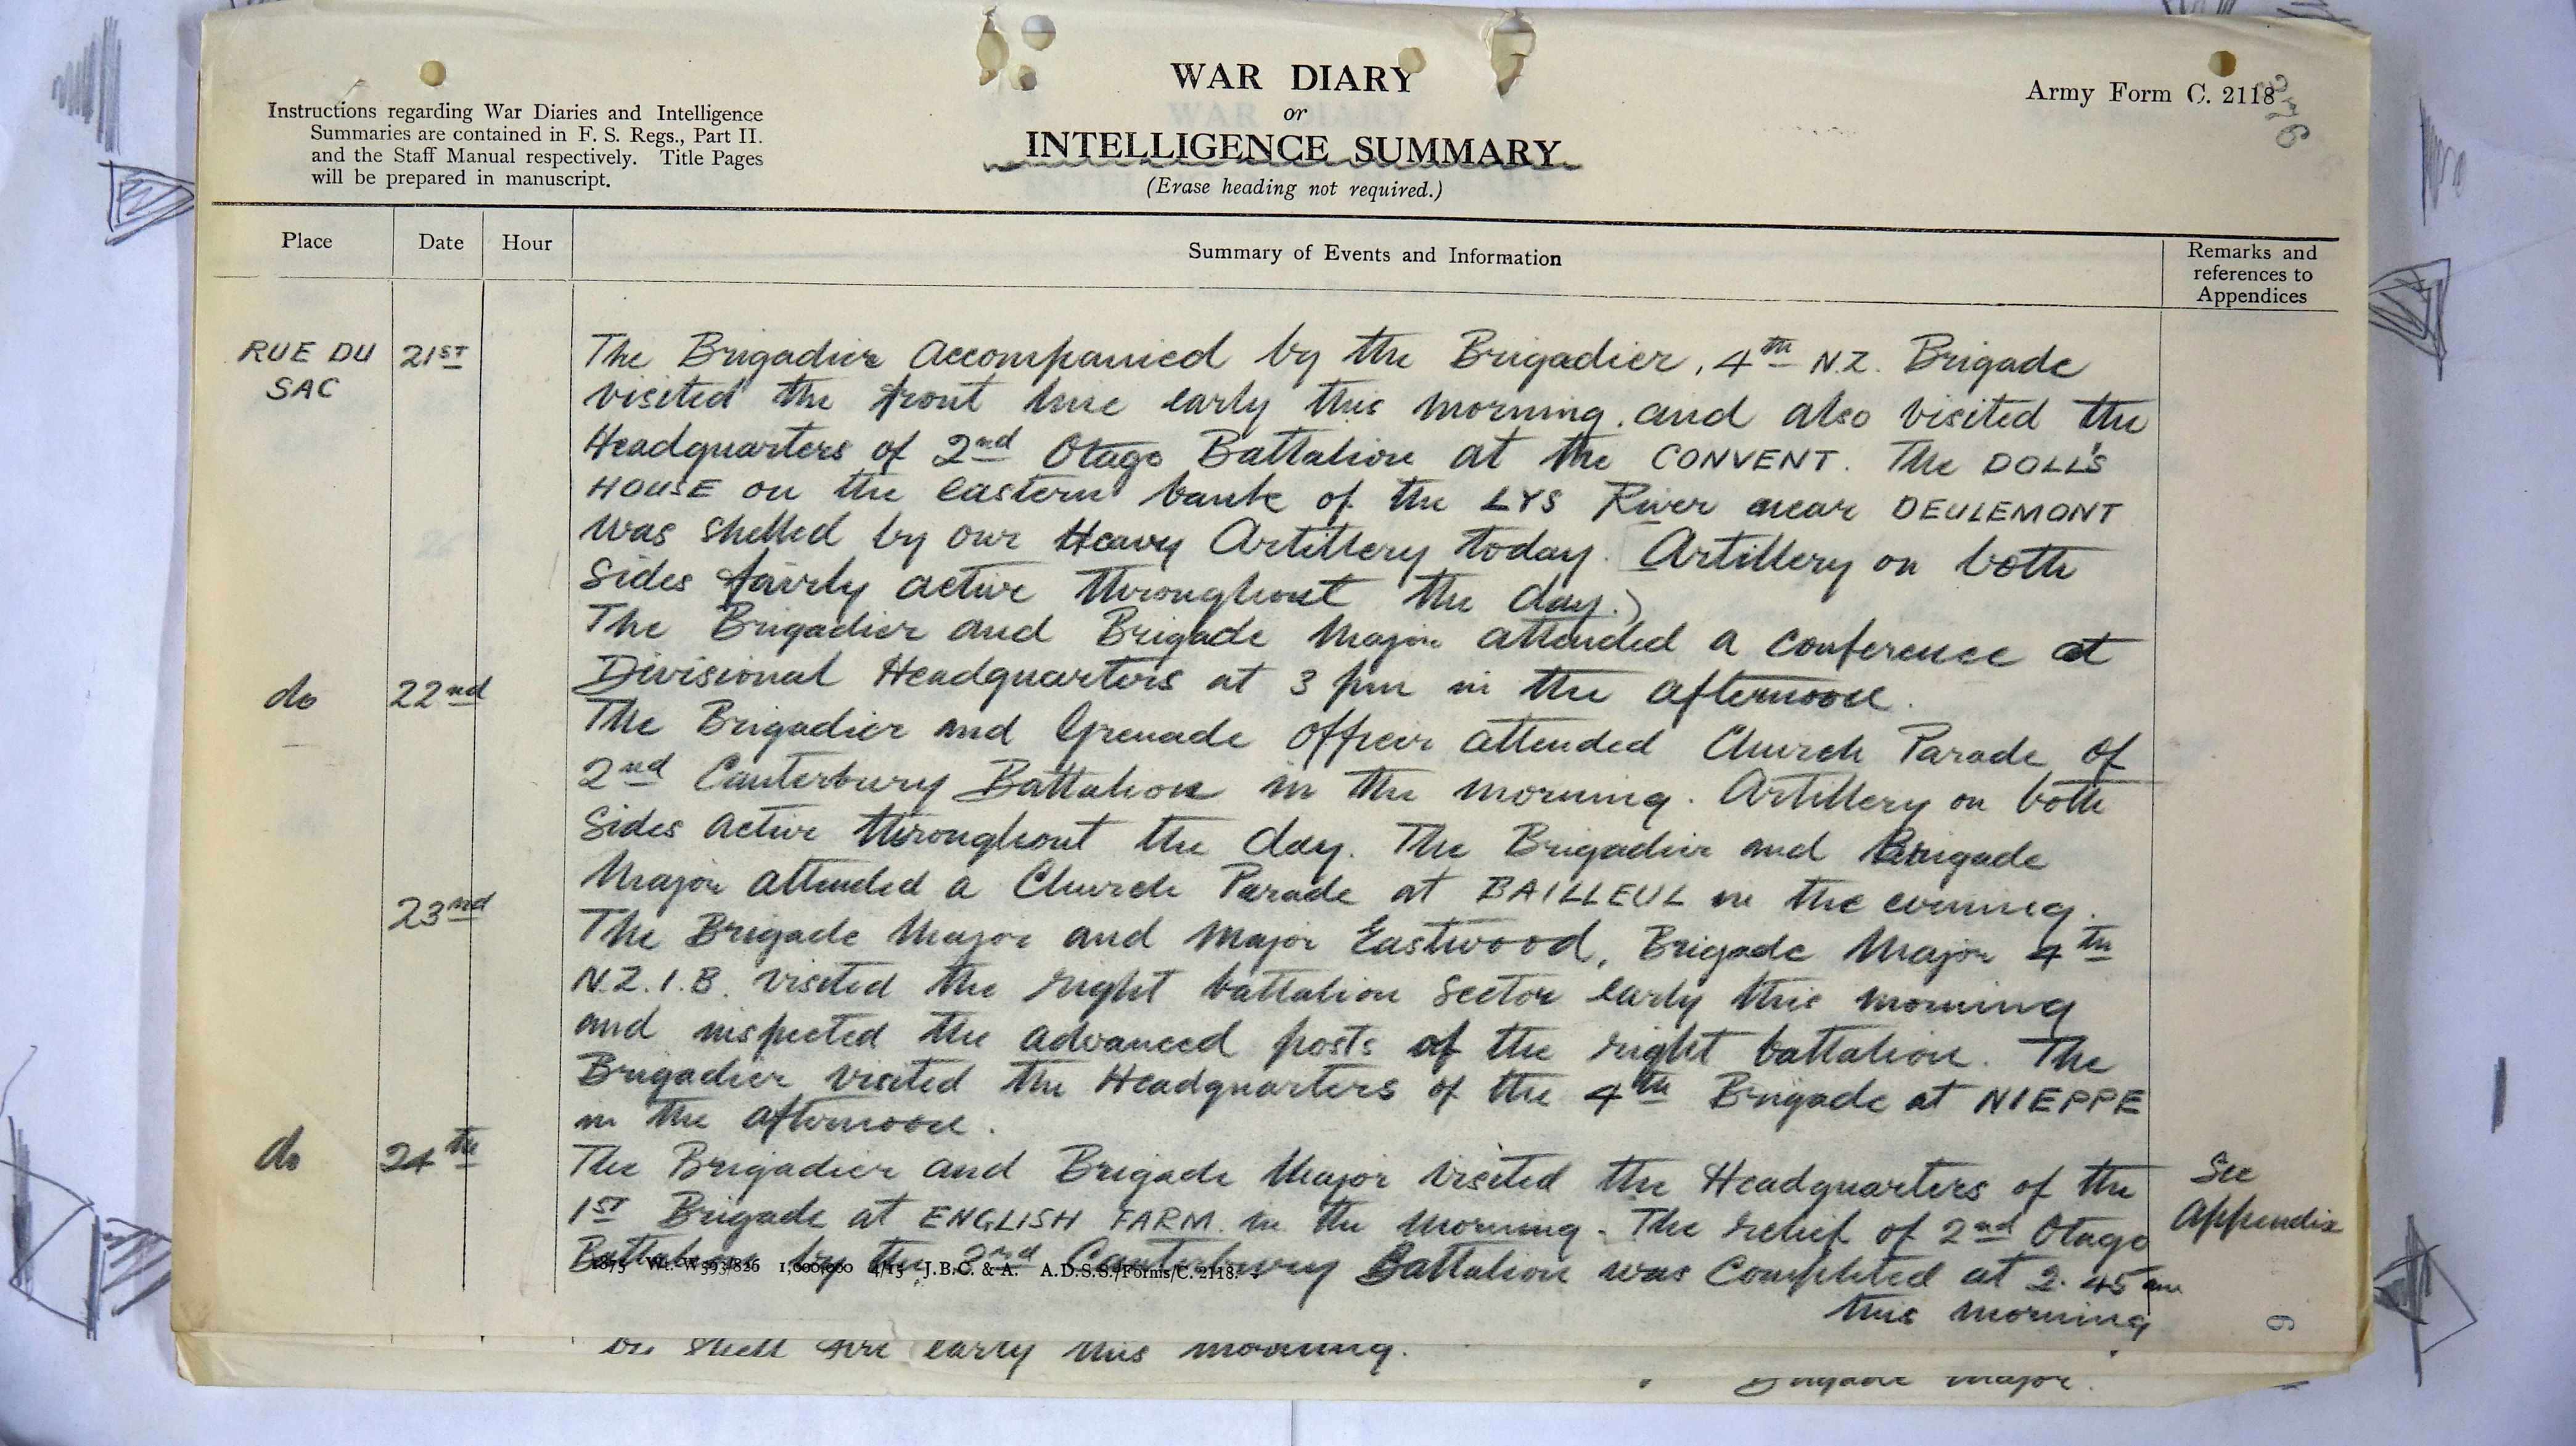 WAR DIARY
or
INTELLIGENCE SUMMARY
(Erase heading not required.)
Army Form C. 2118
Instructions regarding War Diaries and Intelligence
Summaries are contained in F. S. Regs., Part II.
and the Staff Manual respectively. Title Pages
will be prepared in manuscript.
Place Date Hour Summary of Events and Information Remarks and
references to
Appendices
RUE DU 21ST The Brigadier accompanied by the Brigadier, 4th N.Z. Brigade
SAC visited the front line early this morning, and also visited the
Headquarters of 2nd Otago Battalion at the CONVENT. The DOLL'S
HOUSE on the eastern bank of the LYS River near DEULEMONT
was shelled by our Heavy Artillery today. Artillery on both
sides fairly active throughout the day.)
The Brigadier and Brigade Major attended a conference at
Divisional Headquarters at 3 pm in the afternoon.
do 22nd The Brigadier and Grenade Officer attended Church Parade of
2nd Canterbury Battalion in the morning. Artillery on both
sides active throughout the day. The Brigadier and Brigade
Major attended a Church Parade at BAILLEUL in the evening.
23nd The Brigade Major and Major Eastwood, Brigade Major 4th
N.Z.I.B. visited the right battalion sector early this morning
and inspected the advanced posts of the right battalion. The
Brigadier visited the Headquarters of the 4th Brigade at NIEPPE
in the afternoon.
do 24th The Brigadier and Brigade Major visited the Headquarters of the See
1ST Brigade at ENGLISH FARM in the morning. The relief of 2nd Otago Appendix
Battalion by the 2nd Canterbury Battalion was completed at 2.45 am
this morning
1875 Wt. W593/826 1,000,000 4/15 J.B.C. & A. A.D.S.S./Forms/C. 2118.
6
shell fire early this morning.
Brigade Major.